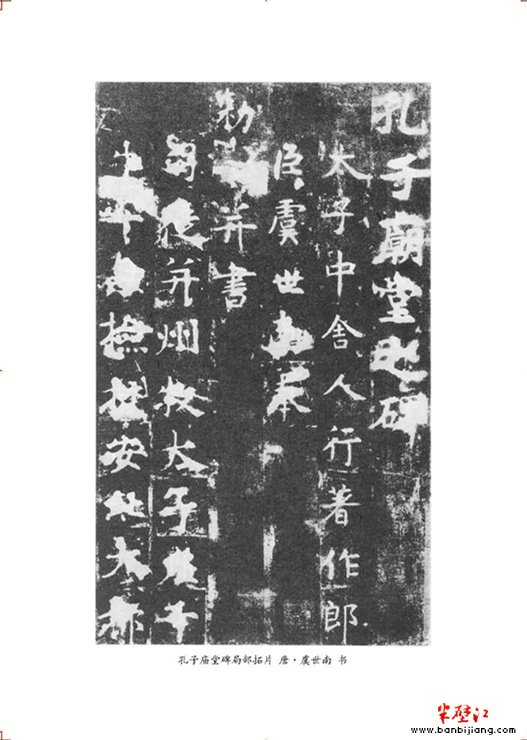 孔子廟堂之碑
太子中舍人行著作郎
臣虞世南奉
勅并書
司徒并州牧太子左千
牛率兼檢校安北大都
孔子庙堂碑局部拓片 唐·虞世南 书
半壁江
www.banbijiang.com